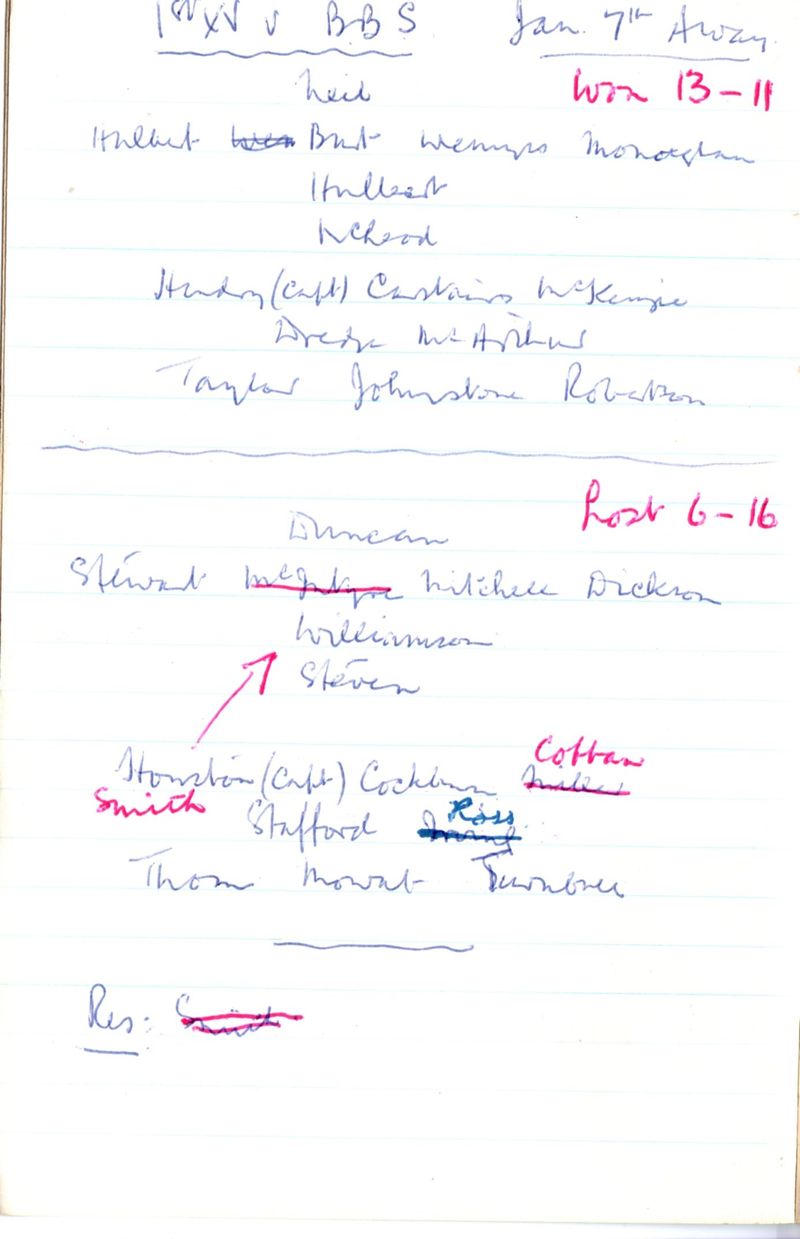 1st XV v BBS Jan. 7th Away
Won 13-11
Neil
Hulbert Burt Wemyss Monaghan
Hulbert
McLeod
Hendry (Capt) Carstairs McKenzie
Dredge McArthur
Taylor Johnstone Robertson
Lost 6-16
Duncan
Stewart McIntyre Mitchell Dickson
Williamson
Steven
Cottan
Houston (Capt) Cockburn Miller
Smith Stafford Ross
Thom Mowat Turnbull
Res: Smith